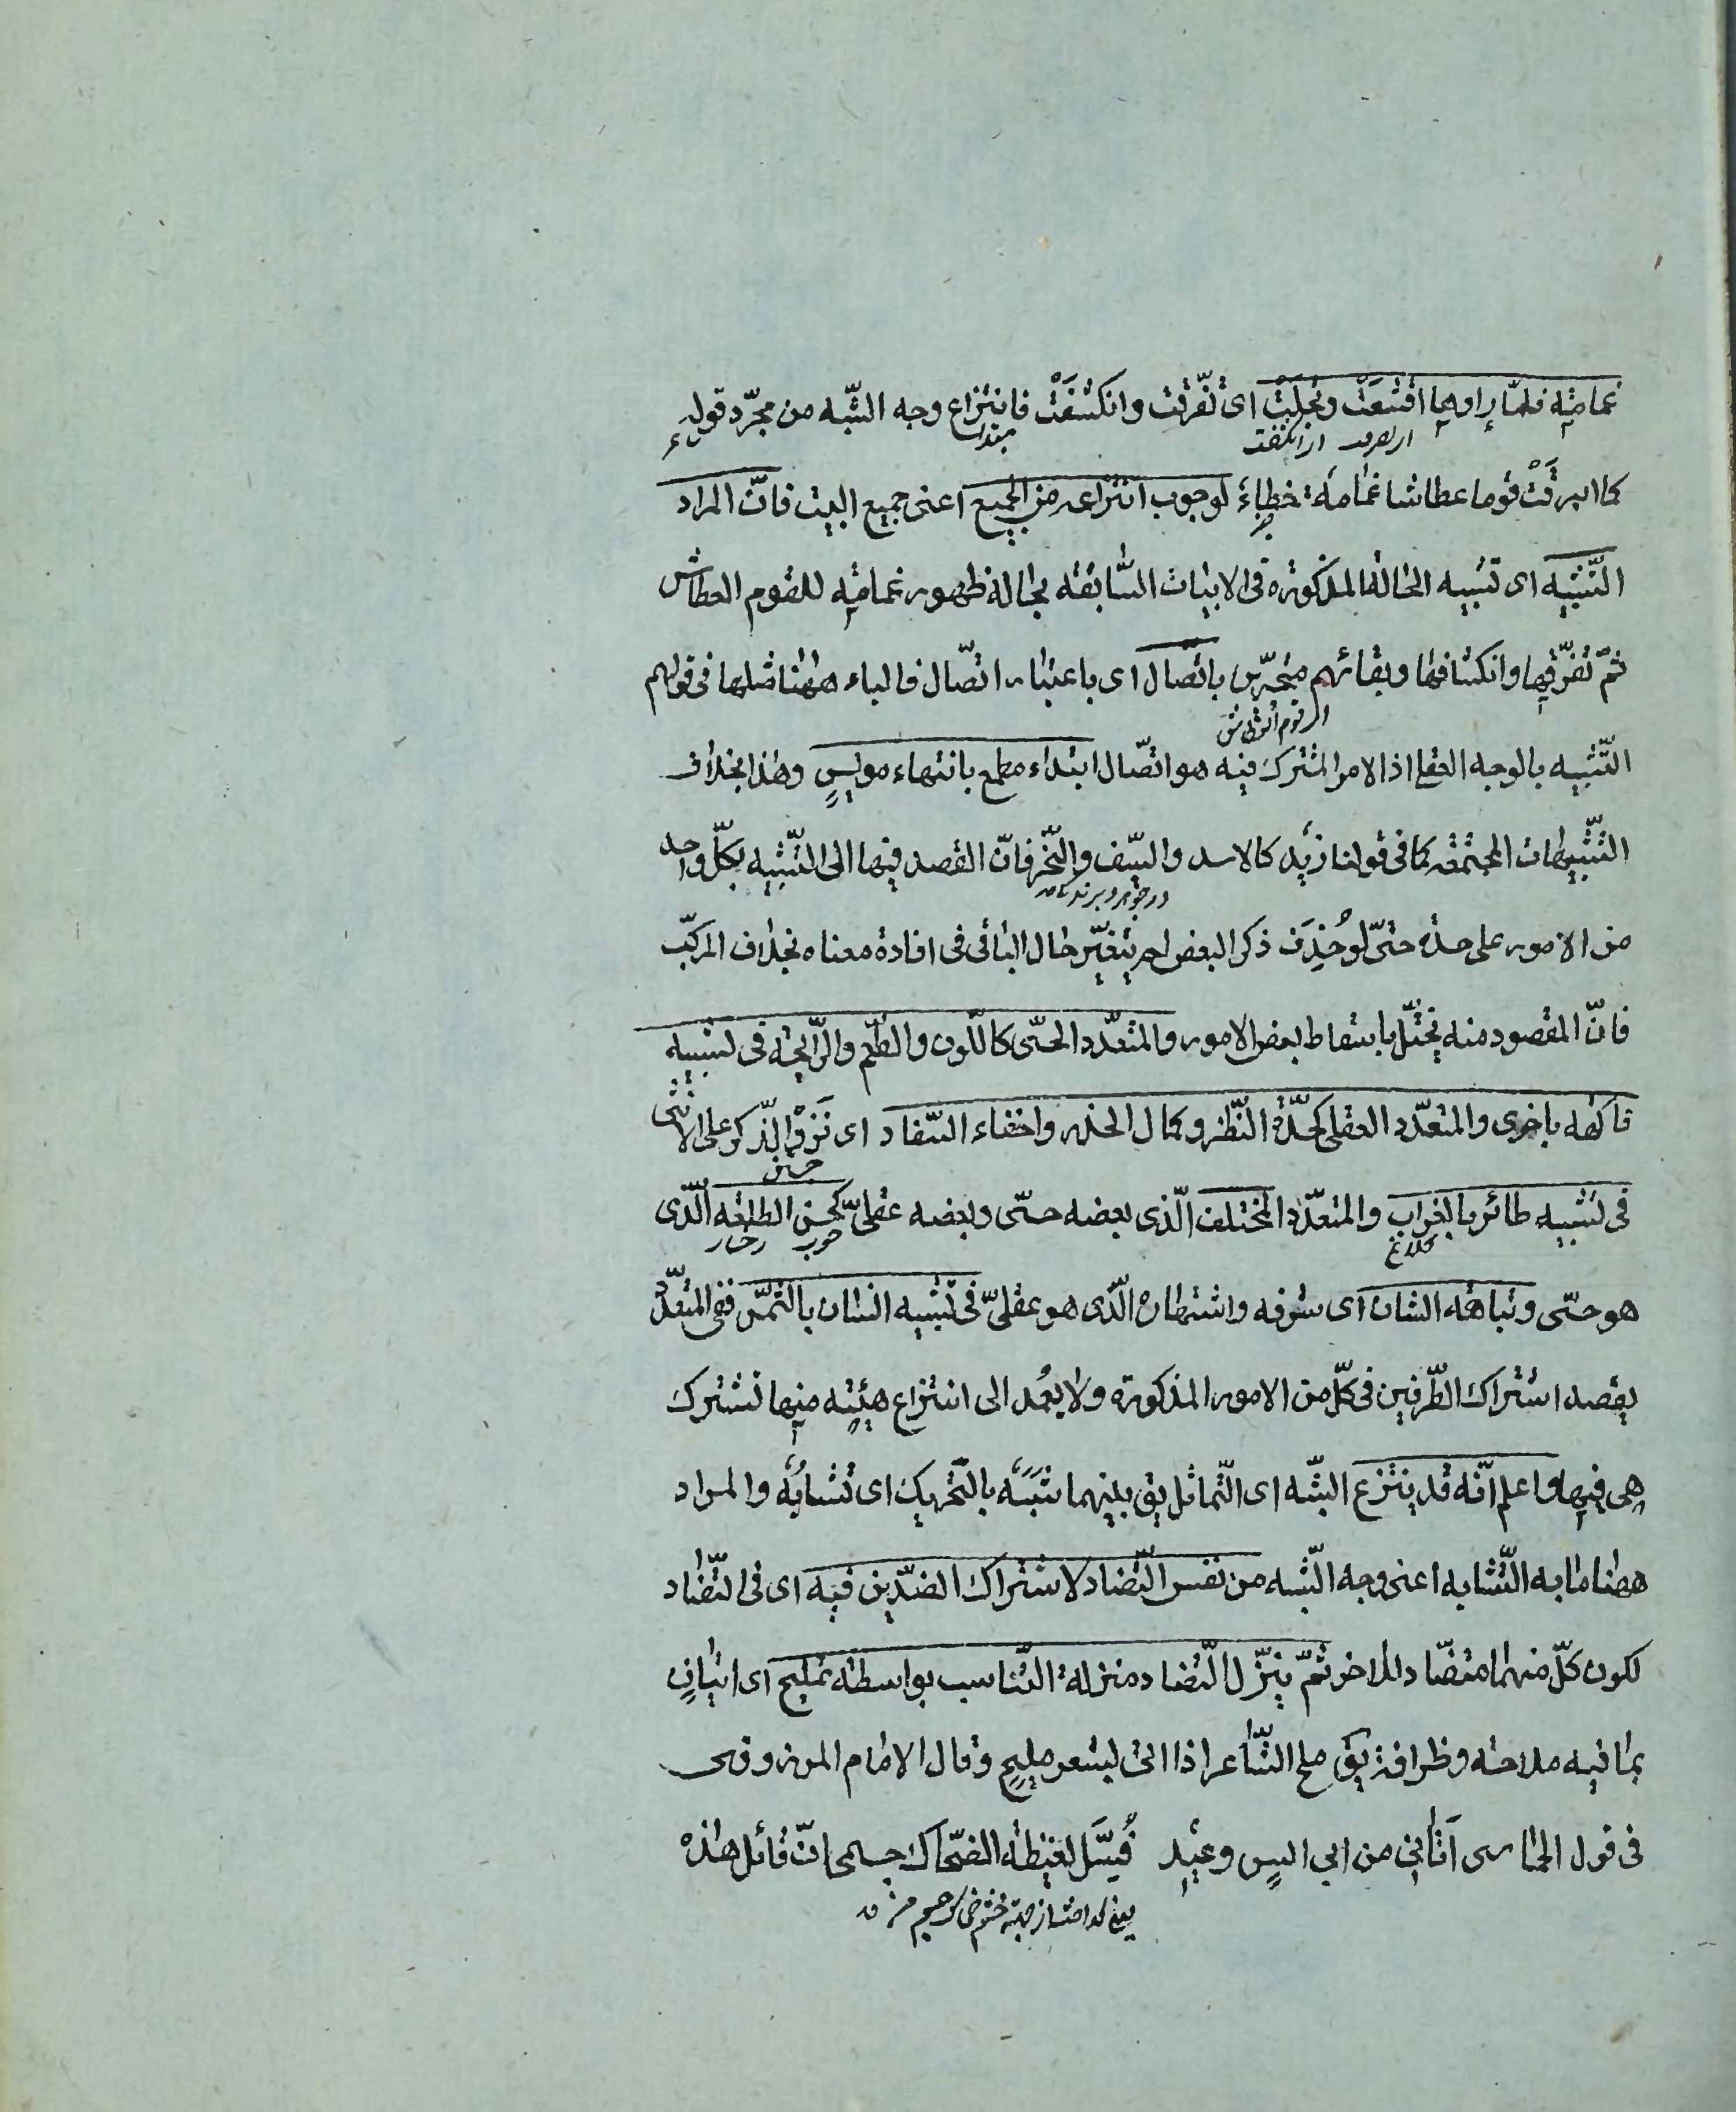 غمامة فلمّا راوها اقشعت وتجلّت اى تفرّقت وانكشفت فانتزاع وجه الشّبه من مجرّد قوله
كما ابرقت قوما عطاشا غمامة خطاء لوجوب انتزاعه من الجميع اعنى جميع البيت فانّ المراد
التّشبيه اى تشبيه الحالة المذكورة فى الابيات السّابقه بحالة ظهور غمامة للقوم العطاش
ثمّ تفرّقها وانكشافها وبقائهم متحيّرين باتّصال اى باعتبار اتّصال فالباء ههنا مثلها فى قولهم
التّشبيه بالوجه العقلى اذ الامر المشترك فيه هو اتّصال ابتداء مطمع بانتهاء مويس وهذا بخلاف
التّشبيهات المجتمعه كما فى قولنا زيد كالاسد والسّيف والبحر فانّ القصد فيها الى التّشبيه بكلّ واحد
من الامور على حدة حتّى لو حُذِفَ ذكر البعض لم يتغيّر حال الباقى فى افادة معناه بخلاف المركّب
فانّ المقصود منه يختلّ باسقاط بعض الامور والمتعدّد الحسّى كاللّون والطّعم والرّايحة فى تشبيه
فاكهه باخرى والمتعدّد العقلى كحدّة النّظر وكمال الحذر واخفاء السّفاد اى نزو الذّكر على الانثى
فى تشبيه طائر بالغراب والمتعدّد المختلف الّذى بعضه حسّى وبعضه عقلىّ كحسن الطلعه الّذى
كلاغ خوب رخسار
هو حسّى ونباهة الشان اى شرفه واشتهاره الّذى هو عقلىّ فى تشبيه انسان بالشّمس ففى المتعدّد
يقصد اشتراك الطّرفين فى كلّ من الامور المذكورة ولا يعمد الى انتزاع هيئة منها تشترك
هى فيها واعلم انّه قد ينتزع الشّبه اى التّماثل يق بينهما شَبَه بالتّحريك اى تشابه والمراد
ههنا ما به التّشابه اعنى وجه الشّبه من نفس التّضاد لاشتراك الضدّين فيه اى فى التّضاد
لكون كلّ منهما متضّادا للاخر ثمّ ينزّل التّضاد منزلة التّناسب بواسطة تمليح اى اتيان
بما فيه ملاحة وظرافة يق ملح الشّاعر اذا اتى بشعر مليح وقال الامام المرزوقى
فى قول الحماسى اتانى من ابى انس وعيد فسلّ لغيظة الضّحاك جسمى انّ قائل هذه